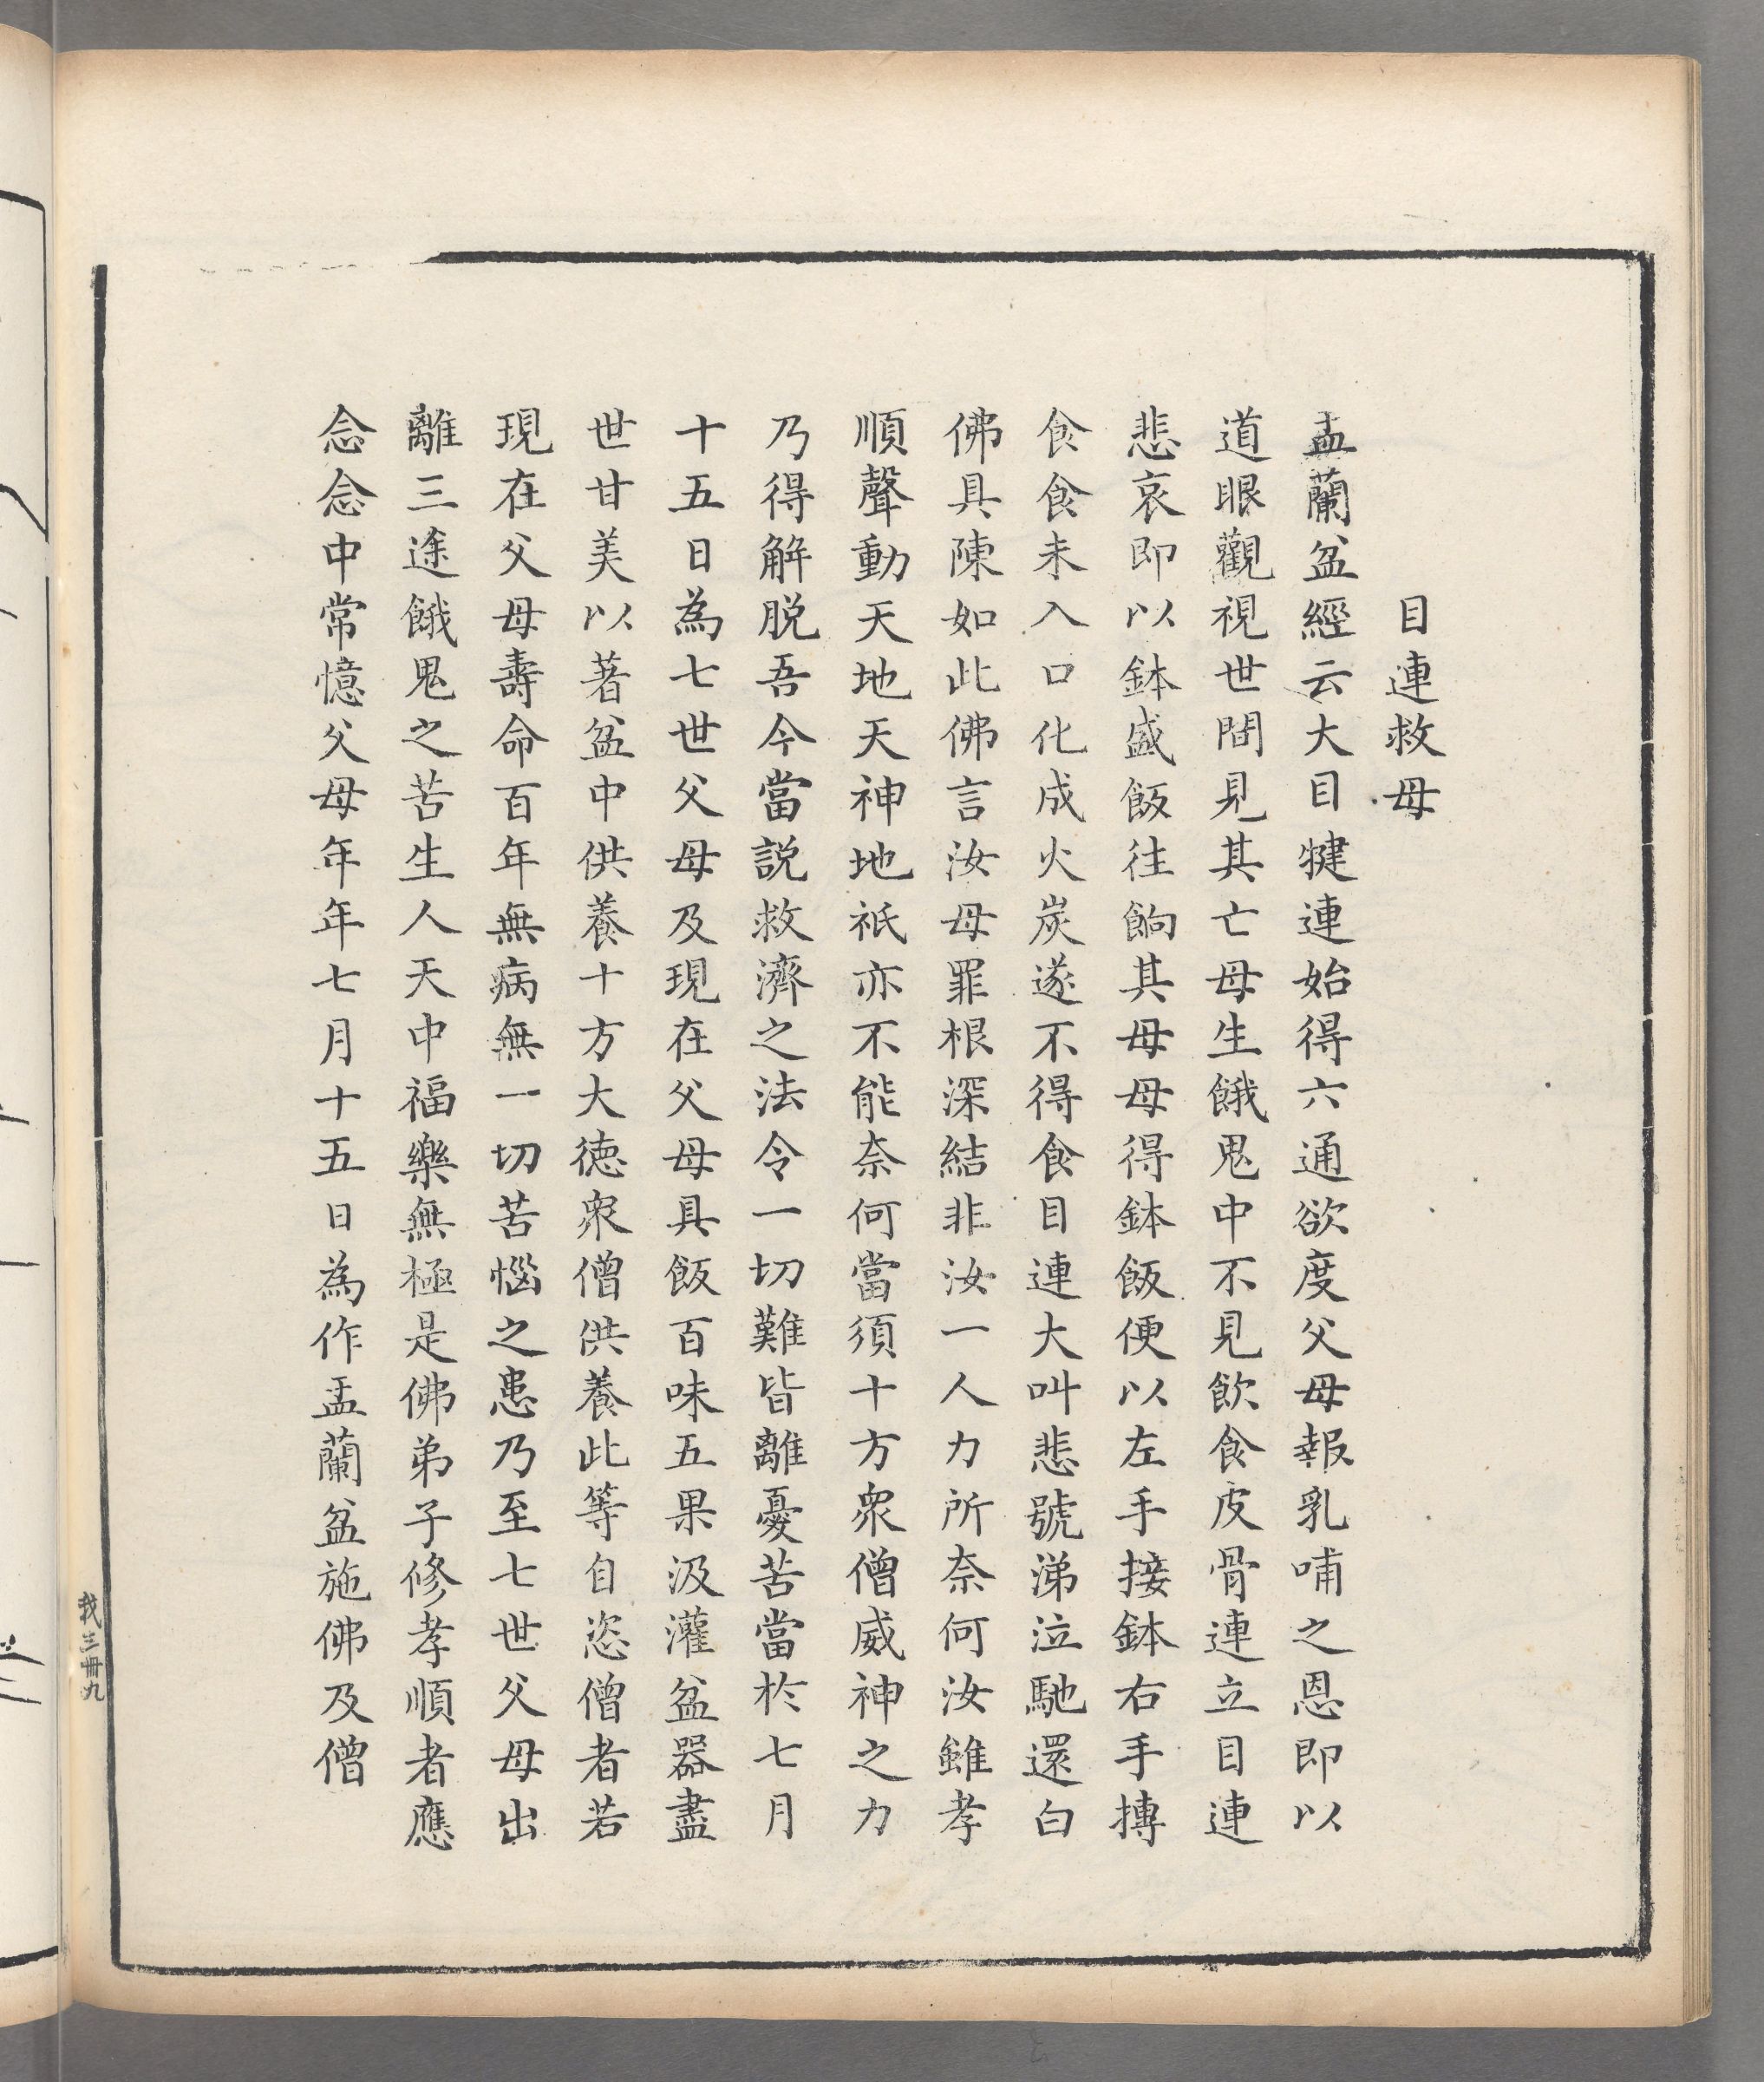 目連救母
盂蘭盆經云大目犍連始得六通欲度父母報乳哺之恩即以
道眼觀視世間見其亡母生餓鬼中不見飲食皮骨連立目連
悲哀即以鉢盛飯往餉其母母得鉢飯便以左手接鉢右手摶
食食未入口化成火炭遂不得食目連大叫悲號涕泣馳還白
佛具陳如此佛言汝母罪根深結非汝一人力所奈何汝雖孝
順聲動天地天神地祇亦不能奈何當須十方衆僧威神之力
乃得解脫吾今當說救濟之法令一切難皆離憂苦當於七月
十五日為七世父母及現在父母具飯百味五果汲灌盆器盡
世甘美以著盆中供養十方大德衆僧供養此等自恣僧者若
現在父母壽命百年無病無一切苦惱之患乃至七世父母出
離三途餓鬼之苦生人天中福樂無極是佛弟子修孝順者應
念念中常憶父母年年七月十五日為作盂蘭盆施佛及僧
我三冊九